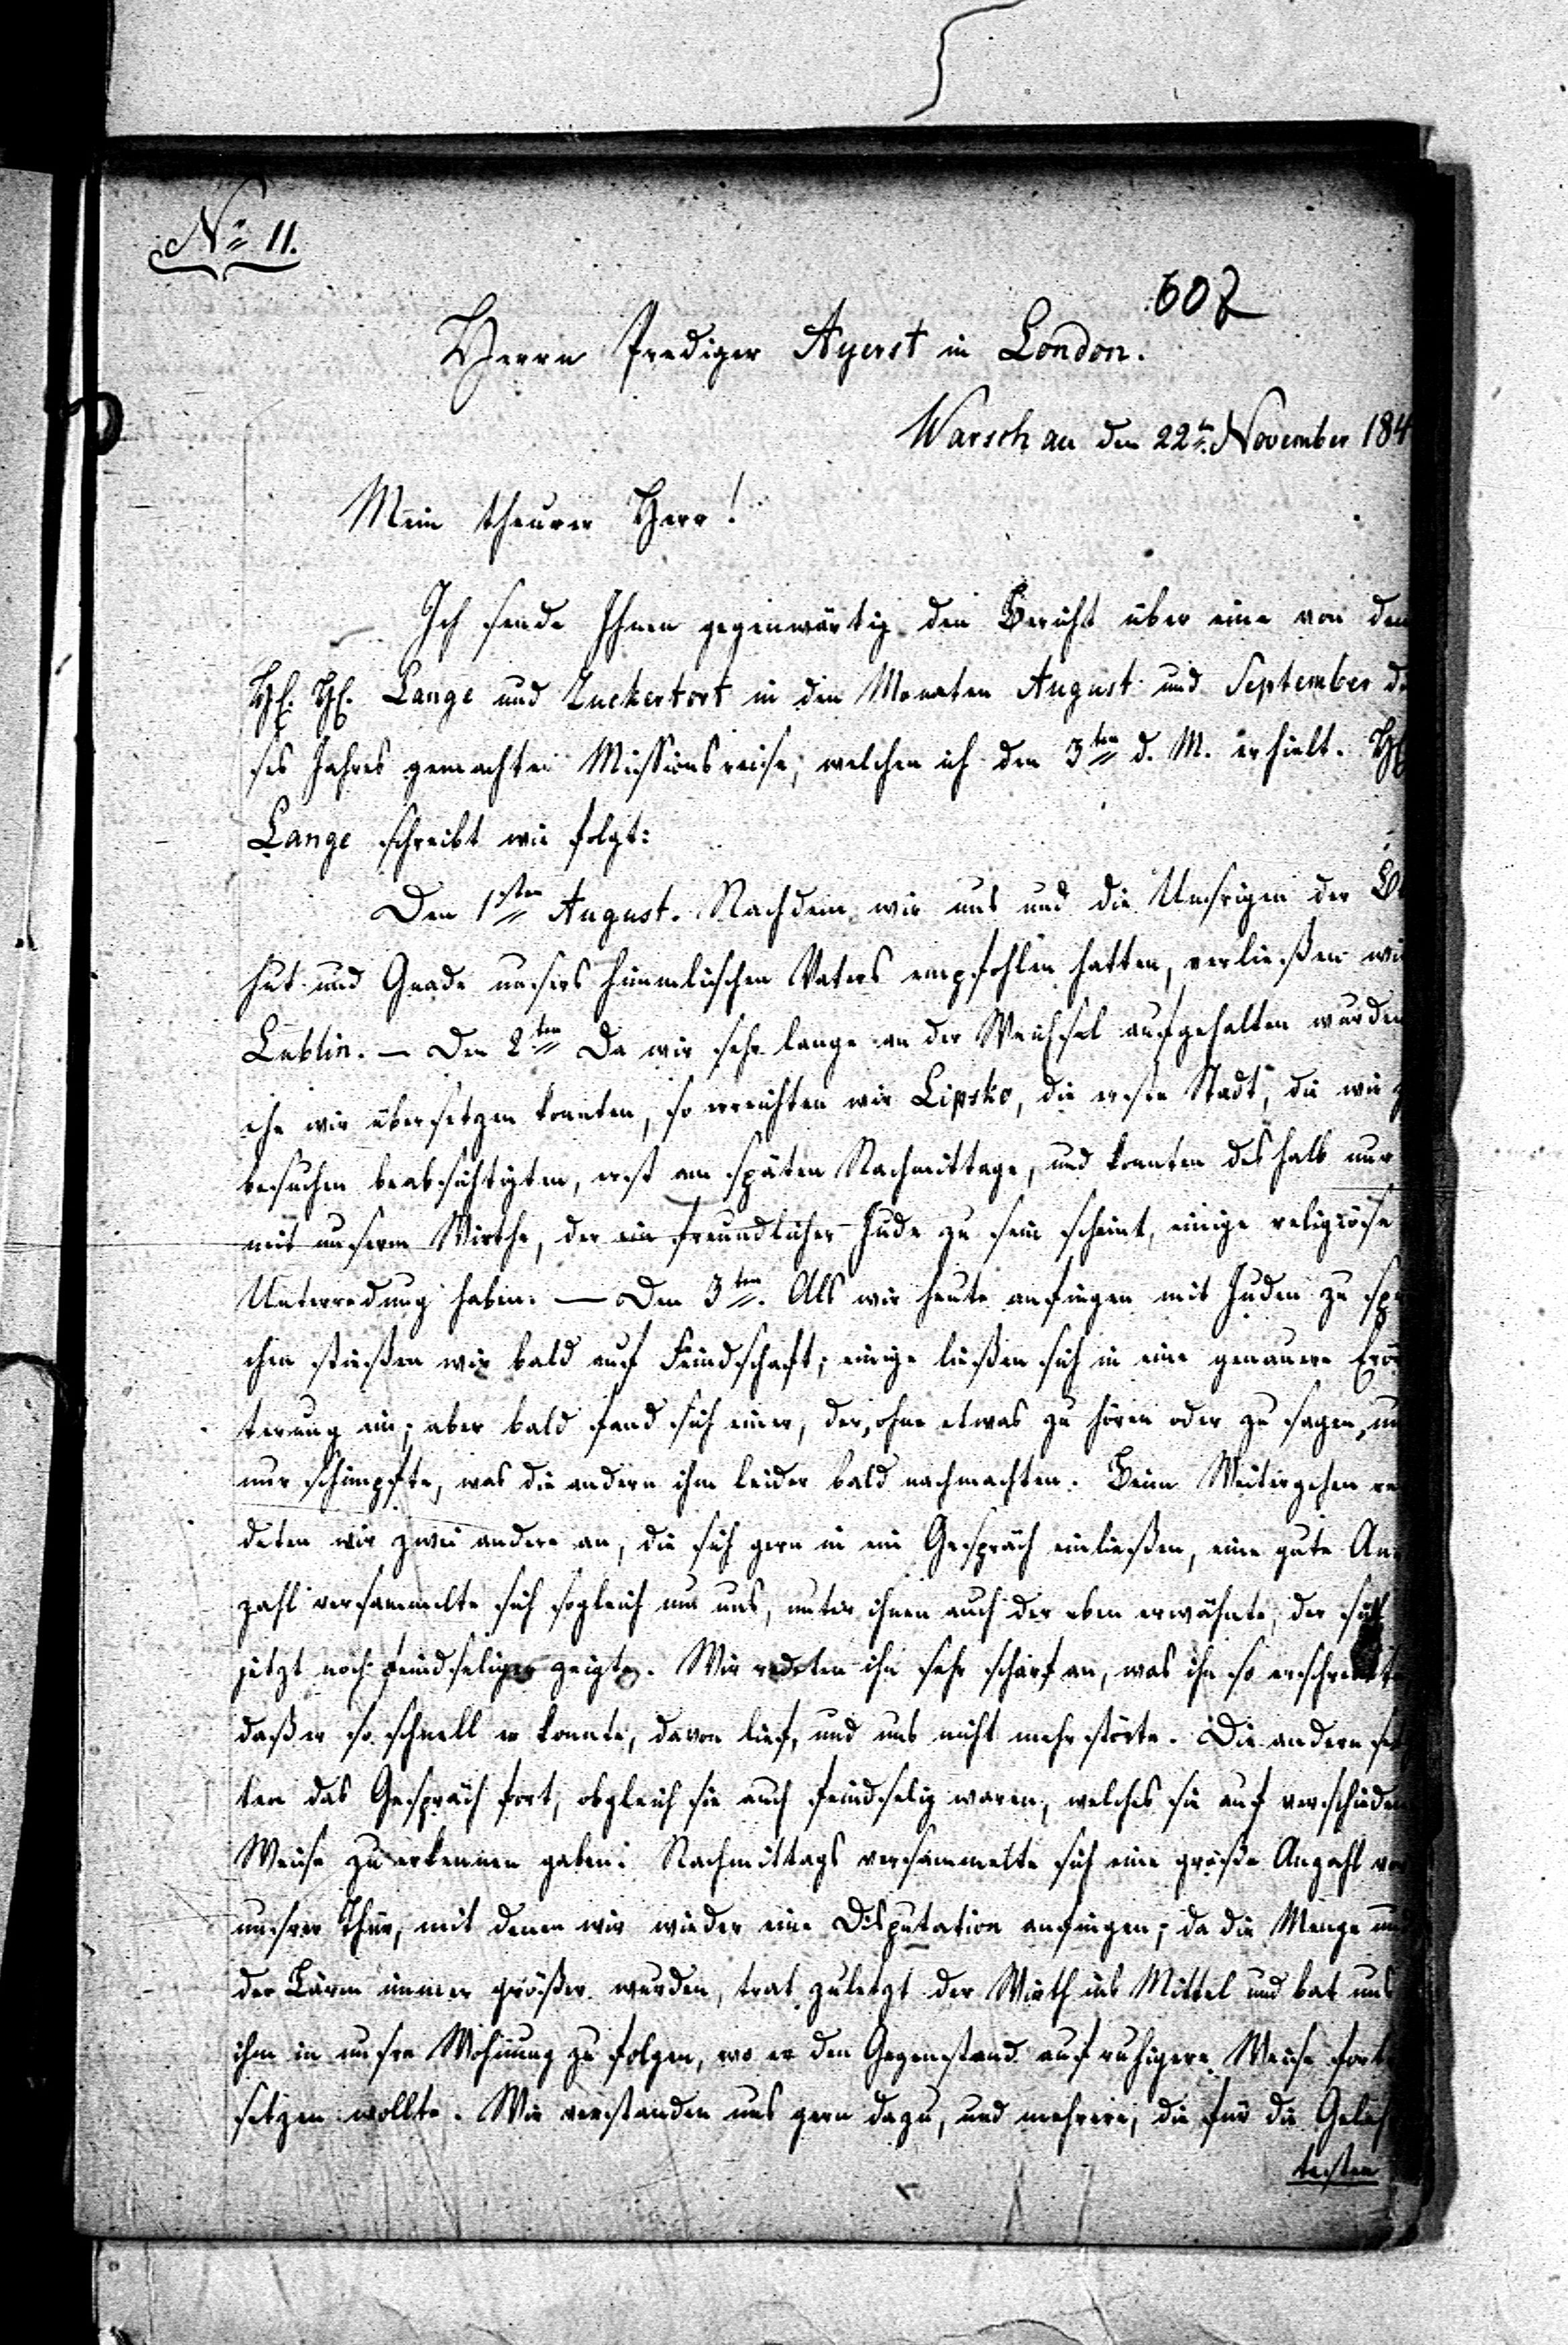 No 11.
607
Herrn Prediger Ayerst in London.
Warschau den 22ten November 184
Mein theurer Herr!
Ich sende Ihnen gegenwärtig den Bericht über eine von den
HH. HH. Lange und Zuckertort in den Monaten August und September d
ses Jahres gemachten Missionsreise, welchen ich den 3ten d. M. erhielt. H
Lange schreibt wie folgt:
Den 1sten August. Nachdem wir uns und die Unsrigen der B
hut und Gnade unsers himmlischen Vaters empfohlen hatten, verließen wir
Lublin. — Den 2ten Da wir sehr lange an der Weichsel aufgehalten wurden
ehe wir übersetzen konnten, so erreichten wir Lipsko, die erste Stadt, die wir z
besuchen beabsichtigten, erst am späten Nachmittage, und konnten deshalb nur
mit unserm Wirthe, der ein freundlicher Jude zu sein scheint, einige religiöse
Unterredung haben. — Den 3ten. Als wir heute anfingen mit Juden zu spr
chen stießen wir bald auf Feindschaft; einige ließen sich in eine genauere Erör
terung ein; aber bald fand sich einer, der, ohne etwas zu hören oder zu sagen,
nur schimpfte, was die andern ihm leider bald nachmachten. Beim Weitergehen re
deten wir zwei andere an, die sich gern in ein Gespräch einließen, eine gute An
zahl versammelte sich sogleich um uns, unter ihnen auch der eben erwähnte, der sich
jetzt noch feindseliger zeigte. Wir redeten ihn sehr scharf an, was ihn so erschreckte
daß er so schnell er konnte, davon lief, und uns nicht mehr störte. Die andern setz
ten das Gespräch fort, obgleich sie auch feindselig waren, welches sie auf verschieden
Weise zu erkennen gaben. Nachmittags versammelte sich eine große Anzahl vor
unsrer Thür, mit denen wir wieder eine Disputation anfingen; da die Menge und
der Lärm immer größer wurden, trat zuletzt der Wirth ins Mittel und bat uns
ihm in unsre Wohnung zu folgen, wo er den Gegenstand auf ruhigere Weise fort
setzen wollte. Wir verstanden uns gern dazu, und mehrere, die für die Geleh
testen